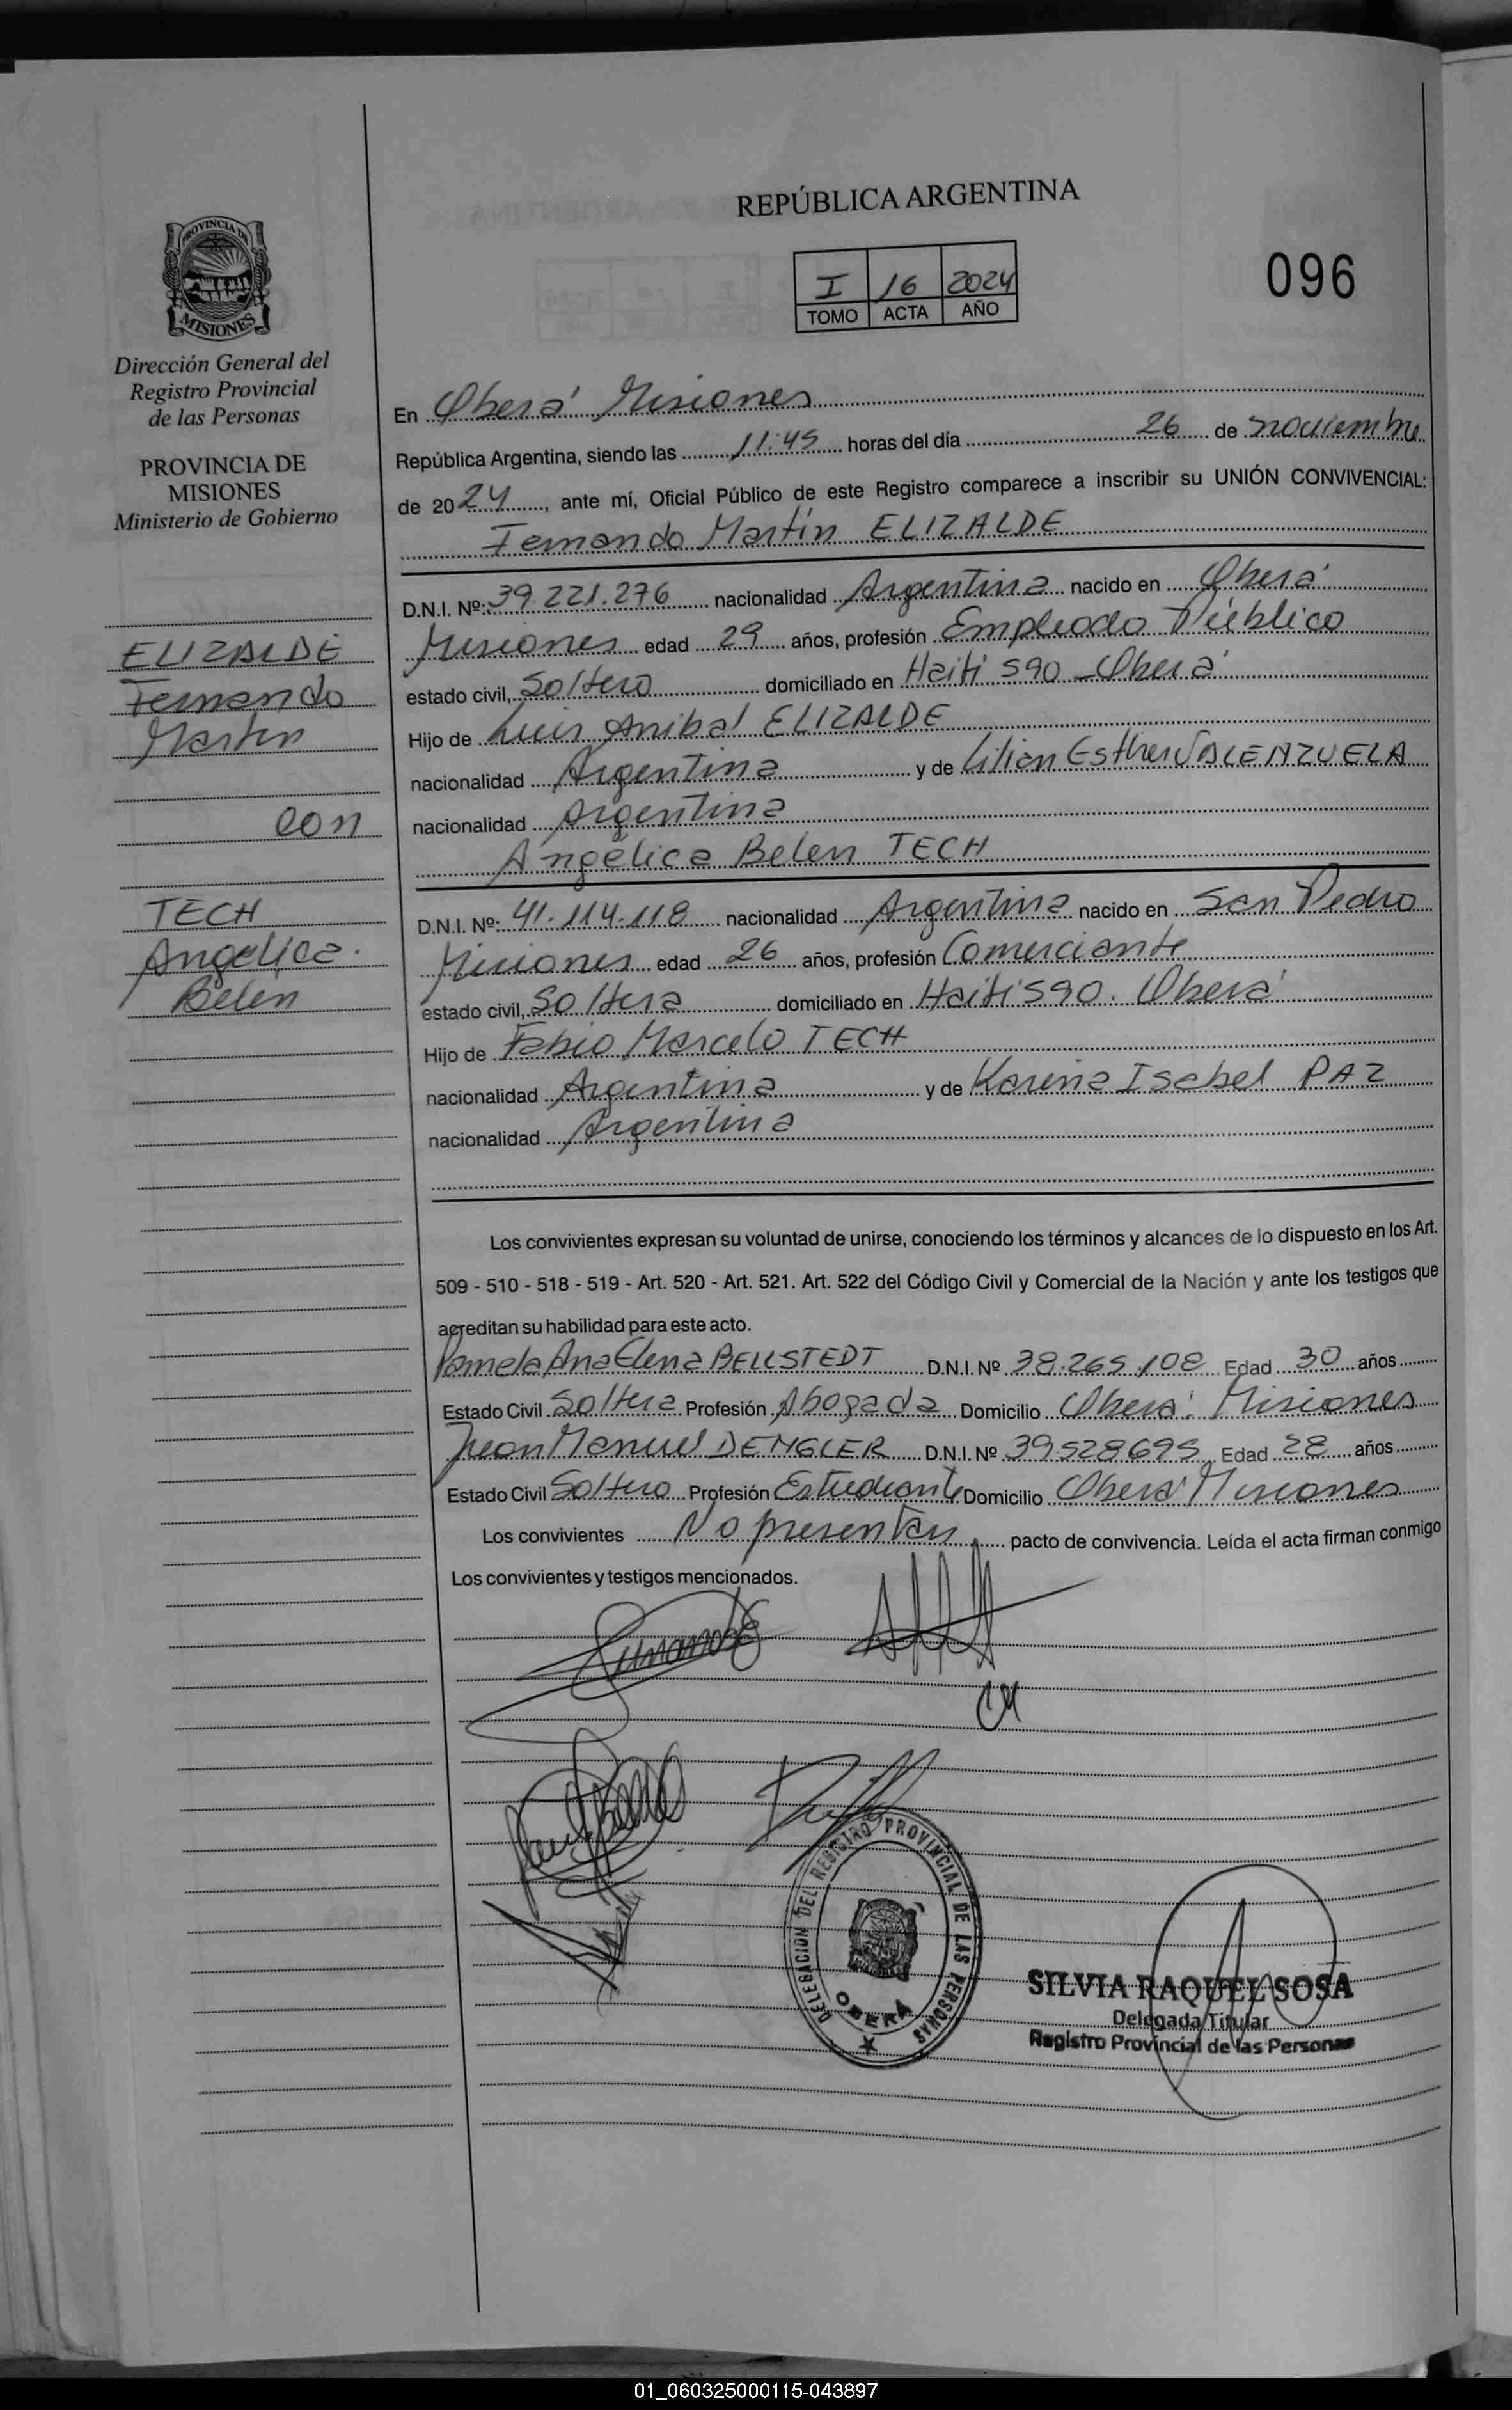 REPÚBLICA ARGENTINA
PROVINCIA DE
MISIONES
I 16 2024
TOMO ACTA AÑO
096
Dirección General del
Registro Provincial
de las Personas
PROVINCIA DE
MISIONES
Ministerio de Gobierno
ELIZALDE
Fernando
Martin
con
TECH
Angelica.
Belén
En Oberá Misiones
República Argentina, siendo las 11:45 horas del día 26 de noviembre
de 2024, ante mí, Oficial Público de este Registro comparece a inscribir su UNIÓN CONVIVENCIAL:
Fernando Martín ELIZALDE
D.N.I. Nº: 39.221.276 nacionalidad Argentina nacido en Oberá
Misiones edad 29 años, profesión Empleado Público
estado civil, Soltero domiciliado en Haiti 590 Oberá
Hijo de Luis Anibal ELIZALDE
nacionalidad Argentina y de Lilian Esther VALENZUELA
nacionalidad Argentina
Angélica Belen TECH
D.N.I. Nº: 41.114.118 nacionalidad Argentina nacido en San Pedro
Misiones edad 26 años, profesión Comerciante
estado civil, Soltera domiciliado en Haiti 590. Oberá
Hijo de Fabio Marcelo TECH
nacionalidad Argentina y de Karina Isabel PAZ
nacionalidad Argentina
Los convivientes expresan su voluntad de unirse, conociendo los términos y alcances de lo dispuesto en los Art.
509 - 510 - 518 - 519 - Art. 520 - Art. 521. Art. 522 del Código Civil y Comercial de la Nación y ante los testigos que
acreditan su habilidad para este acto.
Pamela Ana Elena BELLSTEDT D.N.I. Nº 38.265.108 Edad 30 años
Estado Civil Soltera Profesión Abogada Domicilio Oberá. Misiones
Juan Manuel DENGLER D.N.I. Nº 39.528695 Edad 28 años
Estado Civil Soltero Profesión Estudiante Domicilio Oberá Misiones
Los convivientes No presentan pacto de convivencia. Leída el acta firman conmigo
Los convivientes y testigos mencionados.
DELEGACIÓN DEL REGISTRO PROVINCIAL DE LAS PERSONAS
OBERÁ
SILVIA RAQUEL SOSA
Delegada Titular
Registro Provincial de las Personas
01_060325000115-043897